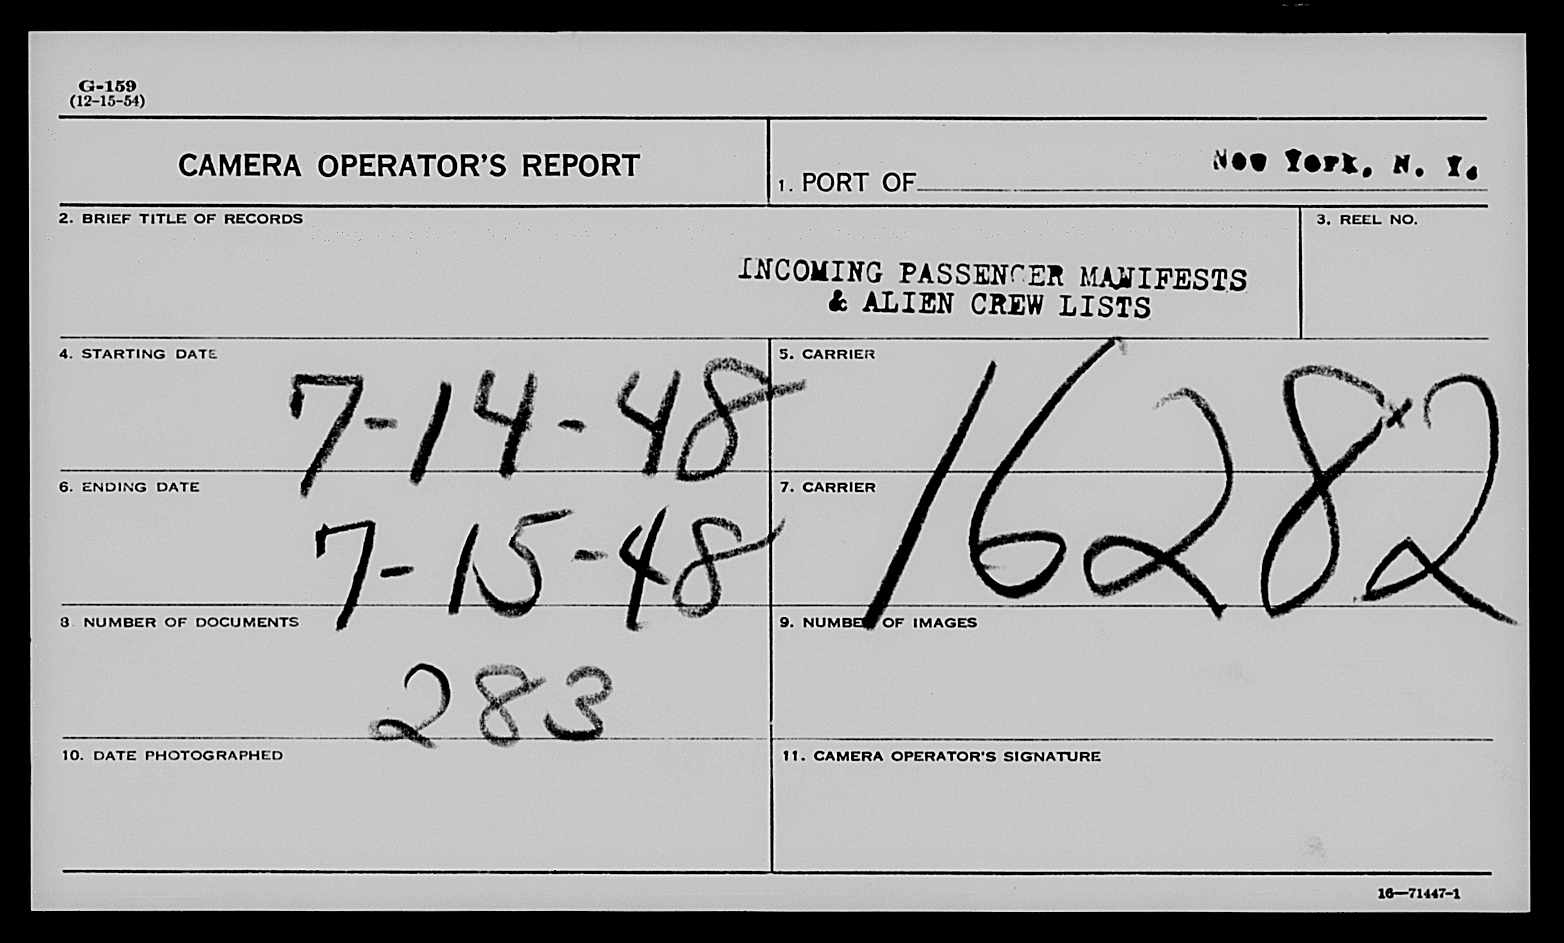 G-159
(12-15-54)
CAMERA OPERATOR'S REPORT
1. PORT OF New York, N. Y.
2. BRIEF TITLE OF RECORDS
3. REEL NO.
INCOMING PASSENGER MANIFESTS
& ALIEN CREW LISTS
4. STARTING DATE
7-14-48
5. CARRIER
16282
6. ENDING DATE
7-15-48
7. CARRIER
8 NUMBER OF DOCUMENTS
283
9. NUMBER OF IMAGES
10. DATE PHOTOGRAPHED
11. CAMERA OPERATOR'S SIGNATURE
16—71447-1